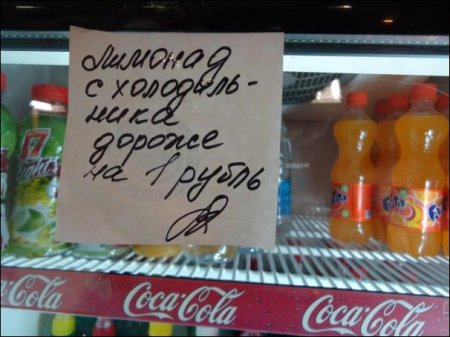 Лимонад
с холодиль-
ника
дороже
на 1 рубль
Fanta
Fanta
Coca-Cola
Coca-Cola
Coca-Cola